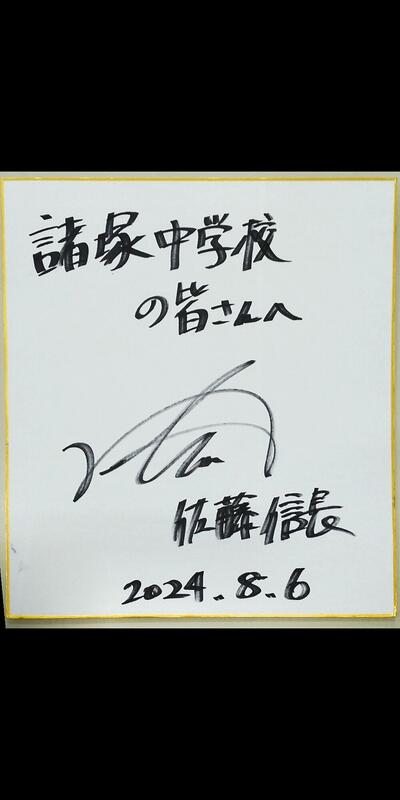 諸塚中学校
の皆さんへ
佐藤信長
2024.8.6